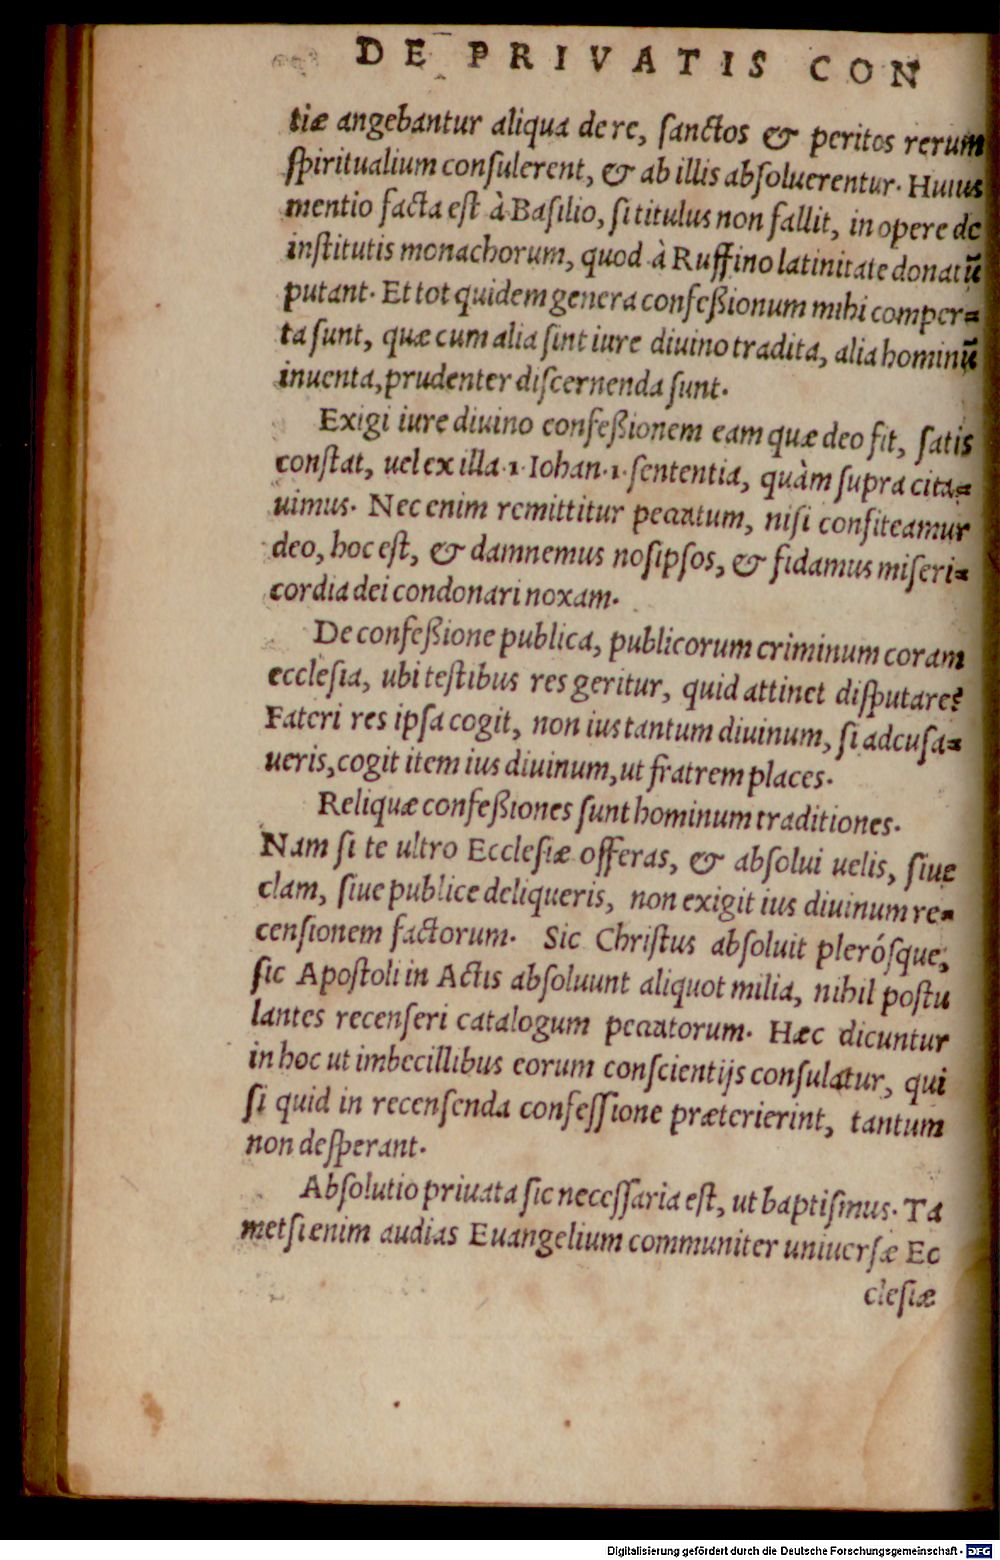 DE PRIVATIS CON
tiæ angebantur aliqua de re, ſanctos & peritos rerum
ſpiritualium conſulerent, & ab illis abſoluerentur. Huius
mentio facta eſt à Baſilio, ſi titulus non fallit, in opere de
inſtitutis monachorum, quod à Ruffino latinitate donatū
putant. Et tot quidem genera confeßionum mihi comper=
ta ſunt, quæ cum alia ſint iure diuino tradita, alia hominū
inuenta, prudenter diſcernenda ſunt.
Exigi iure diuino confeßionem eam quæ deo fit, ſatis
conſtat, uel ex illa .1. Iohan .1. ſententia, quàm ſupra cita=
uimus. Nec enim remittitur peccatum, niſi confiteamur
deo, hoc eſt, & damnemus noſipſos, & fidamus miſeri=
cordia dei condonari noxam.
De confeßione publica, publicorum criminum coram
eccleſia, ubi teſtibus res geritur, quid attinet diſputare?
Fateri res ipſa cogit, non ius tantum diuinum, ſi adcuſa=
ueris, cogit item ius diuinum, ut fratrem places.
Reliquæ confeßiones ſunt hominum traditiones.
Nam ſi te ultro Eccleſiæ offeras, & abſolui uelis, ſiue
clam, ſiue publice deliqueris, non exigit ius diuinum re=
cenſionem factorum. Sic Chriſtus abſoluit pleróſque,
ſic Apoſtoli in Actis abſoluunt aliquot milia, nihil poſtu
lantes recenſeri catalogum peccatorum. Hæc dicuntur
in hoc ut imbecillibus eorum conſcientijs conſulatur, qui
ſi quid in recenſenda confeſſione præterierint, tantum
non deſperant.
Abſolutio priuata ſic neceſſaria eſt, ut baptiſmus. Ta
metſi enim audias Euangelium communiter uniuerſæ Ec
cleſiæ
Digitalisierung gefördert durch die Deutsche Forschungsgemeinschaft - DFG